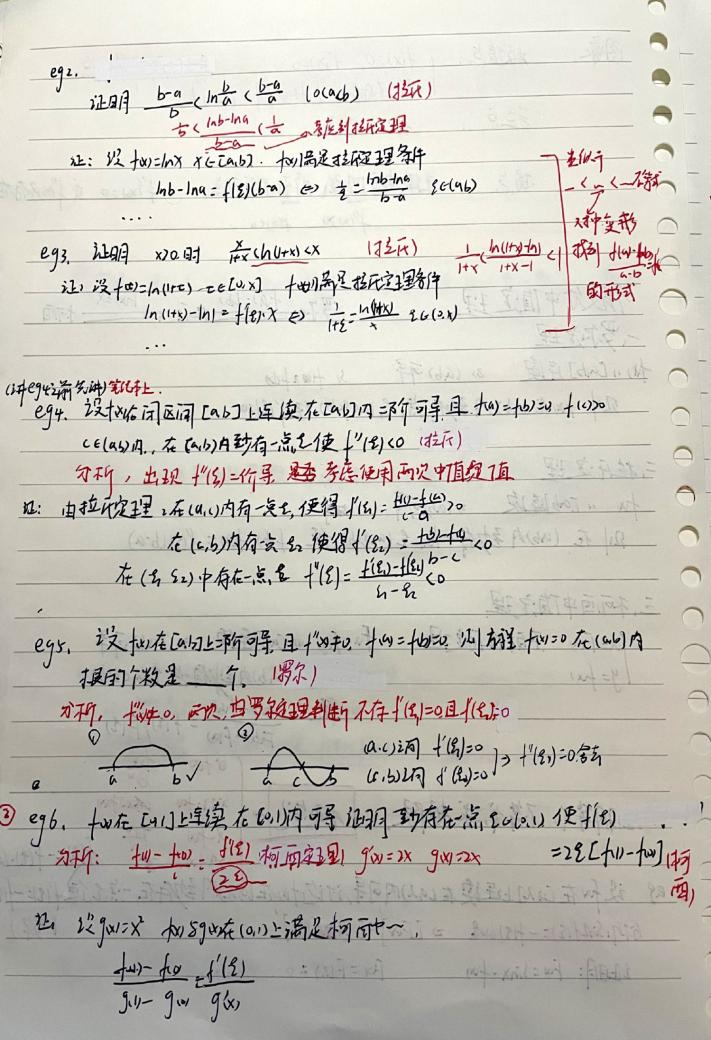 eg2.
证明 (b-a)/b < ln b/a < (b-a)/a (0<a<b) (拉氏)
1/b < (lnb-lna)/(b-a) < 1/a 考虑到拉氏定理
证: 设 f(x)=lnx x∈[a,b]. f(x)满足拉氏定理条件
lnb-lna=f'(ξ)(b-a) ⇔ 1/ξ=(lnb-lna)/(b-a) ξ∈(a,b)
....
类似于
_<_<_不等式
对中变形
找到 (f(a)-f(b))/(a-b)
的形式
eg3. 证明 x>0时 x/(1+x)<ln(1+x)<x (拉氏) 1/(1+x)<(ln(1+x)-ln1)/(1+x-1)<1
证: 设f(t)=ln(1+t) t∈[0,x] f(t)满足拉氏定理条件
ln(1+x)-ln1=f'(ξ)·x ⇔ 1/(1+ξ)=ln(1+x)/x ξ∈(0,x)
...
(讲eg4之前先讲)笔记本上.
eg4. 设f(x)在闭区间[a,b]上连续,在[a,b]内二阶可导,且f(a)=f(b)=0, f(c)>0
c∈(a,b)内, 在(a,b)内至少有一点ξ使f''(ξ)<0 (拉氏)
分析, 出现f''(ξ)=价导 考虑使用两次中值定理
证: 由拉氏定理,在(a,c)内有一点ξ₁使得f'(ξ₁)=(f(c)-f(a))/(c-a)>0
在(c,b)内有一点ξ₂使得f'(ξ₂)=(f(b)-f(c))/(b-c)<0
在(ξ₁ ξ₂)中存在一点ξ f''(ξ)=(f'(ξ₁)-f'(ξ₂))/(ξ₁-ξ₂)<0
eg5. 设f(x)在[a,b]上二阶可导,且f''(x)≠0, f(a)=f(b)=0. 则方程f(x)=0在(a,b)内
根的个数是___个. (罗尔)
分析, f''(x)≠0, 两次, 由罗尔定理判断 不存f'(ξ₁)=0且f'(ξ₂)=0
① a b ✓
② a c b
(a,c)之间 f'(ξ₁)=0
(c,b)之间 f'(ξ₂)=0
⇒ f''(ξ₃)=0舍去
③ eg6. f(x)在[0,1]上连续 在(0,1)内可导 证明 至少存在一点ξ∈(0,1) 使f'(ξ)
=2ξ[f(1)-f(0)] (柯西)
分析: (f(1)-f(0))/1=f'(ξ)/2ξ 柯西定理 g'(x)=2x g'(x)=2x
证: 设g(x)=x² f(x)与g(x)在(0,1)上满足柯西~~.
(f(1)-f(0))/(g(1)-g(0))=f'(ξ)/g'(x)